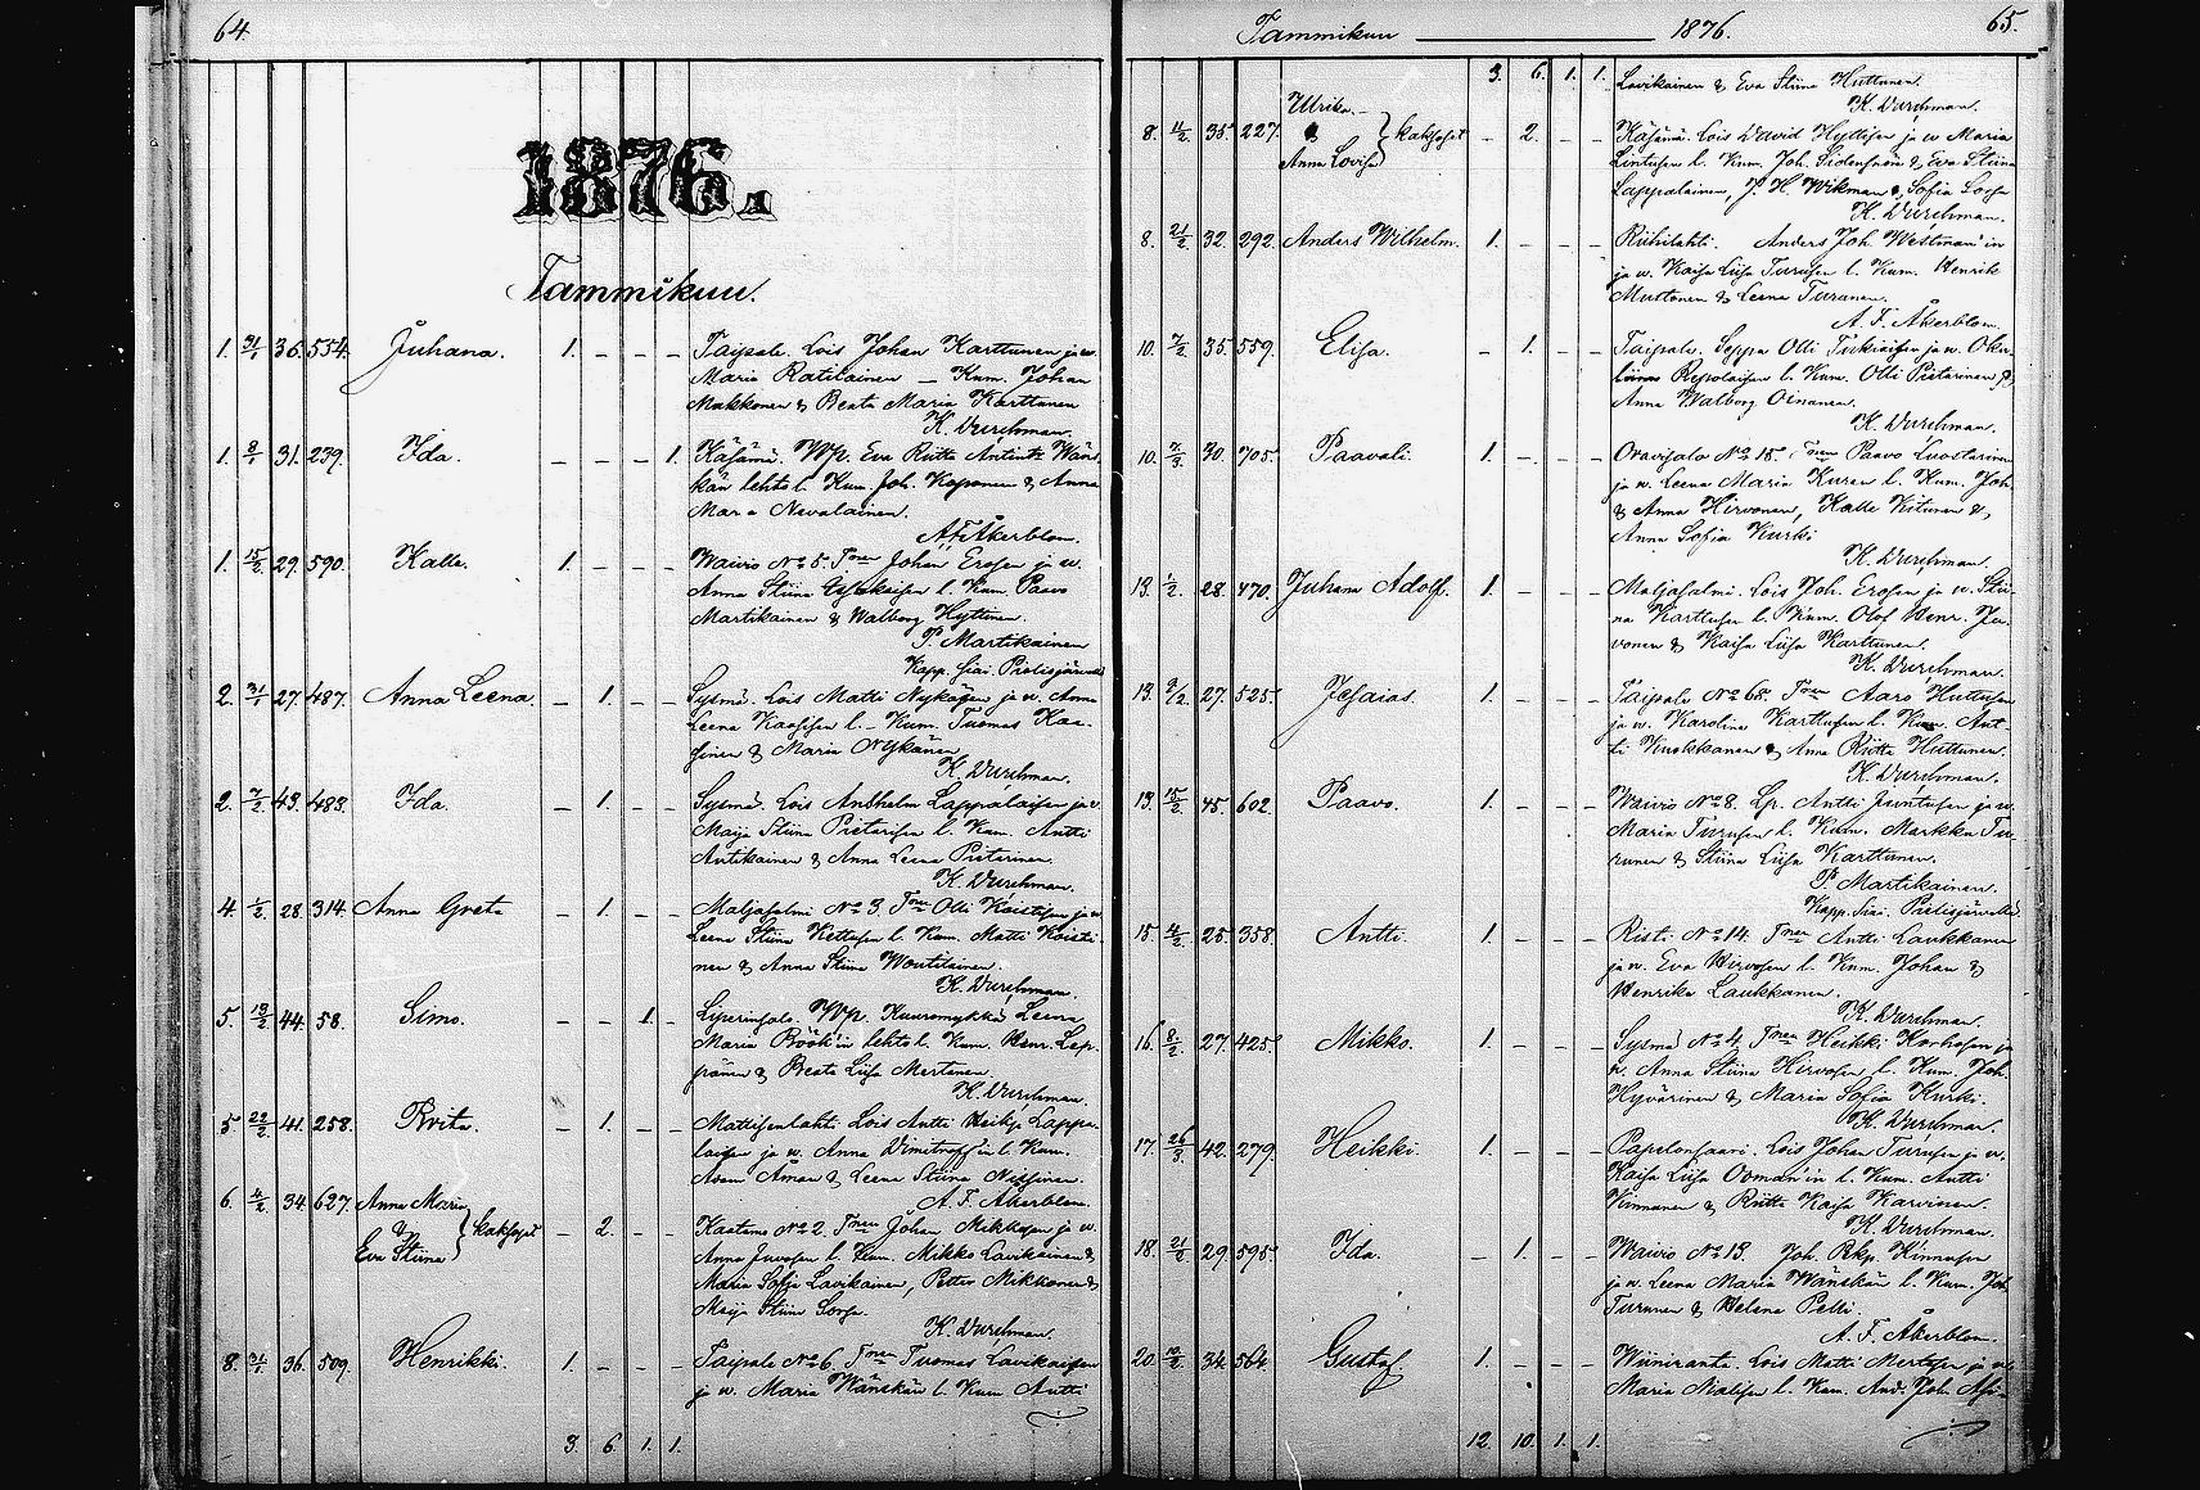 64.
1876.
Tammikuu.
1. 31/1 36. 554. Juhana. 1. – – – Taipale. Lois Johan Karttunen ja w.
Maria Ratilainen — Kum. Johan
Makkonen & Beata Maria Karttunen
K. Durchman.
1. 8/1 31. 239. Ida. – – – 1. Käsämä. Wp. Eva Riitta Antint. Wäns-
kän lehto l. Kum. Joh. Koponen & Anna
Mar a Nevalainen.
A. F. Åkerblom.
1. 15/2 29. 590. Kalle. 1. – – – Waivio No 5. Tnen Johan Erosen ja w.
Anna Stiina l. Kum. Paavo
Martikainen & Walborg Hyttinen.
P. Martikainen
Kapp. Siai. Pielisjärvellä
2. 31/1 27. 487. Anna Leena. – 1. – – Sysmä. Lois Matti Nykäsen ja w. Anna
Leena Kaasisen l. – Kum. Tuomas Kaa-
sinen & Maria Nykänen
K. Durchman.
2. 7/2 43. 483. Ida. – 1. – – Sysmä. Lois Anshelm Lappalaisen ja w.
Maija Stiina Pietarisen l. Kum. Antti
Antikainen & Anna Leena Pietarinen.
K. Durchman.
4. 1/2 28. 314. Anna Greta – 1. – – Maljasalmi No 3. Tnen Olli Koistisen ja w
Leena Stiina Kettusen l. Kum. Matti Koisti-
nen & Anna Stiina Woutilainen.
K. Durchman.
5. 13/2 44. 58. Simo. – – 1. – Liperinsalo. Wp. Kuuromykkä Leena
Maria Böök'in lehto l. Kum. Henr. Lep-
pänen & Beata Liisa Mertanen.
K. Durchman.
5. 22/2 41. 258. Riita. – 1. – – Mattisenlahti. Lois Antti Heikp. Lappa-
laisen ja w. Anna Dimitroff'in l. Kum.
Adam Åman & Leena Stiina Nissinen.
A. F. Åkerblom.
6. 4/2 34. 627. Anna Maria
& kaksoset – 2. – – Kaatamo No 2. Tnen Johan Mikkosen ja w.
Eva Stiina Anna Juvosen l. Kum. Mikko Lavikainen &
Maria Sofia Lavikainen, Petter Mikkonen &
Maija Stiina Sorsa.
K. Durchman.
8. 31/1 36. 509. Henrikki. 1. – – – Taipale No 6. Tnen Tuomas Lavikaisen
ja w. Maria Wänskän l. Kum Antti
3. 6. 1. 1.
Tammikuu — 1876. 65.
3. 6. 1. 1. Lavikainen & Eva Stiina Huttunen.
K. Durchman.
Ulrika
8. 11/2 35. 227. & kaksoset – 2. – – Käsämä. Lois David Hyttisen ja w Maria
Anna Lovisa Lintusen l. Kum. Joh. & Eva Stiina
Lappalainen, J. H. Wikman & Sofia Sorsa
K. Durchman.
8. 21/2 32. 292. Anders Wilhelm. 1. – – – Riihilahti. Anders Joh. Westman'in
ja w. Kaisa Liisa Turusen l. Kum. Henrik
Muttonen & Leena Turunen.
A. F. Åkerblom.
10. 7/2 35. 559. Elisa. – 1. – – Taipale. Seppa Olli Turkiaisen ja w. Oku-
Repolaisen l. Kum. Olli Pietarinen &
Anna Walborg Oinonen.
K. Durchman.
10. 7/3 30. 705. Paavali. 1. – – – Oravisalo No 18. Tnen Paavo Luostarinen
ja w. Leena Maria Kuren l. Kum. Joh.
& Anna Hirvonen, Kalle Kitunen &
Anna Sofia Kurki
K. Durchman.
13. 1/2 28. 470. Juhana Adolf. 1. – – – Maljasalmi. Lois Joh. Erosen ja w. Stii-
na Karttusen l. Kum. Olof Henr. Ju-
vonen & Kaisa Liisa Karttunen.
K. Durchman.
13. 9/2 27. 525. Jesaias. 1. – – – Taipale No 68. Tnen Aaro Huttusen
ja w. Karolina Karttusen l. Kum. Ant-
ti Kuokkanen & Anna Riitta Huttunen.
K. Durchman.
13. 15/2 45. 602. Paavo. 1. – – – Waivio No 8. Lp. Antti Juntusen ja w.
Maria Turusen l. Kum. Markku Tu-
runen & Stiina Liisa Karttunen.
P. Martikainen.
Kapp. Siai. Pielisjärvellä
15. 4/2 25. 358. Antti. 1. – – – Risti No 14. Tnen Antti Laukkanen
ja w. Eva Hirvosen l. Kum. Johan &
Henrika Laukkanen.
K. Durchman.
16. 8/2 27. 425. Mikko. 1. – – – Sysmä No 4. Tnen Heikki Korhosen ja
w. Anna Stiina Hirvosen l. Kum. Joh.
Hyvärinen & Maria Sofia Kurki.
K. Durchman.
17. 26/3 42. 279. Heikki. 1. – – – Papelonsaari. Lois Johan Turusen ja w.
Kaisa Liisa Ovman'in l. Kum. Antti
Kinnunen & Riitta Kaisa Karvinen.
K. Durchman.
18. 21/2 29. 595. Ida. – 1. – – Waivio No 13. Joh. Rkp. Kinnusen
ja w. Leena Maria Wänskän l. Kum. Joh.
Turunen & Helena Pelli.
A. F. Åkerblom.
20. 19/2 34. 564. Gustaf. 1. – – – Wiiniranta. Lois Matti Mertasen ja w.
Maria Nialisen l. Kum. And. Joh. Asi-
12. 10. 1. 1.